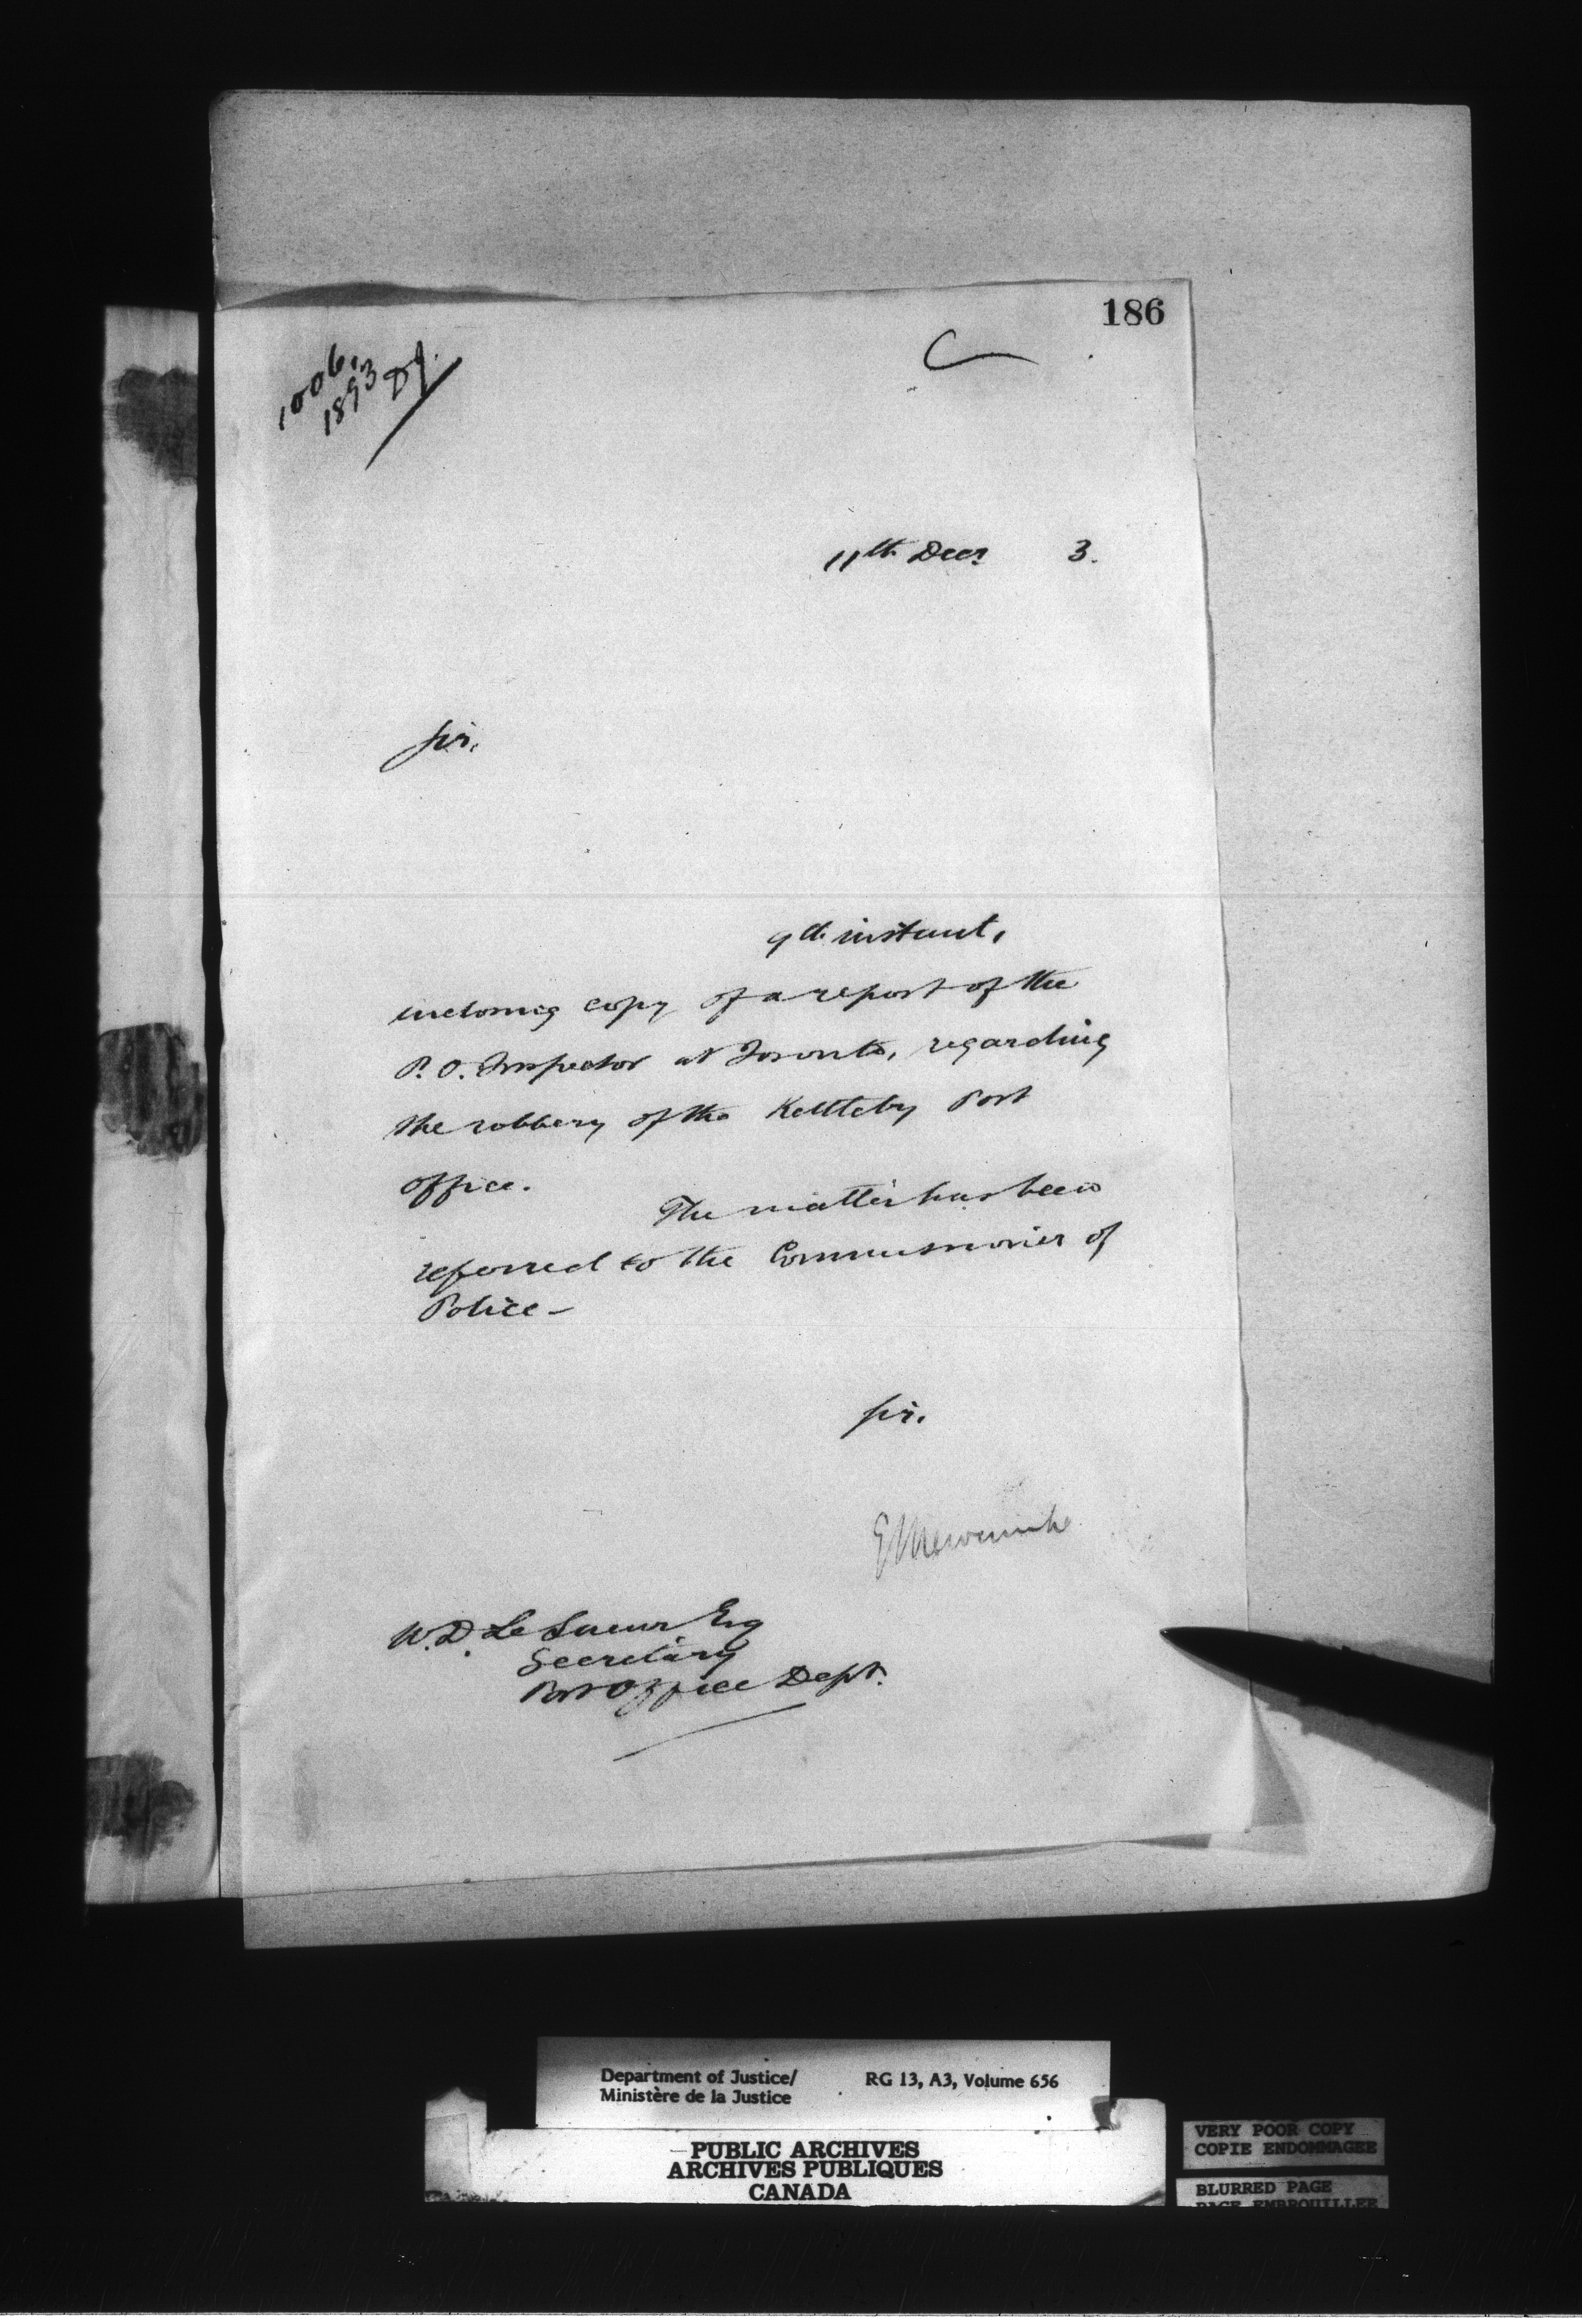 186
C
1006.
1893
DJ.
11th Decr 3.
Sir,
9th instant,
inclosing copy of a report of the
P. O. Inspector at Toronto, regarding
the robbery of the Kettleby Post
Office.
The matter has been
referred to the Commissioner of
Police –
Sir.
E L Newcombe
W. D. Le Sueur Esq
Secretary
Post Office Dept.
Department of Justice/ RG 13, A3, Volume 656
Ministère de la Justice
PUBLIC ARCHIVES
ARCHIVES PUBLIQUES
CANADA
VERY POOR COPY
COPIE ENDOMMAGEE
BLURRED PAGE
PAGE EMBROUILLEE